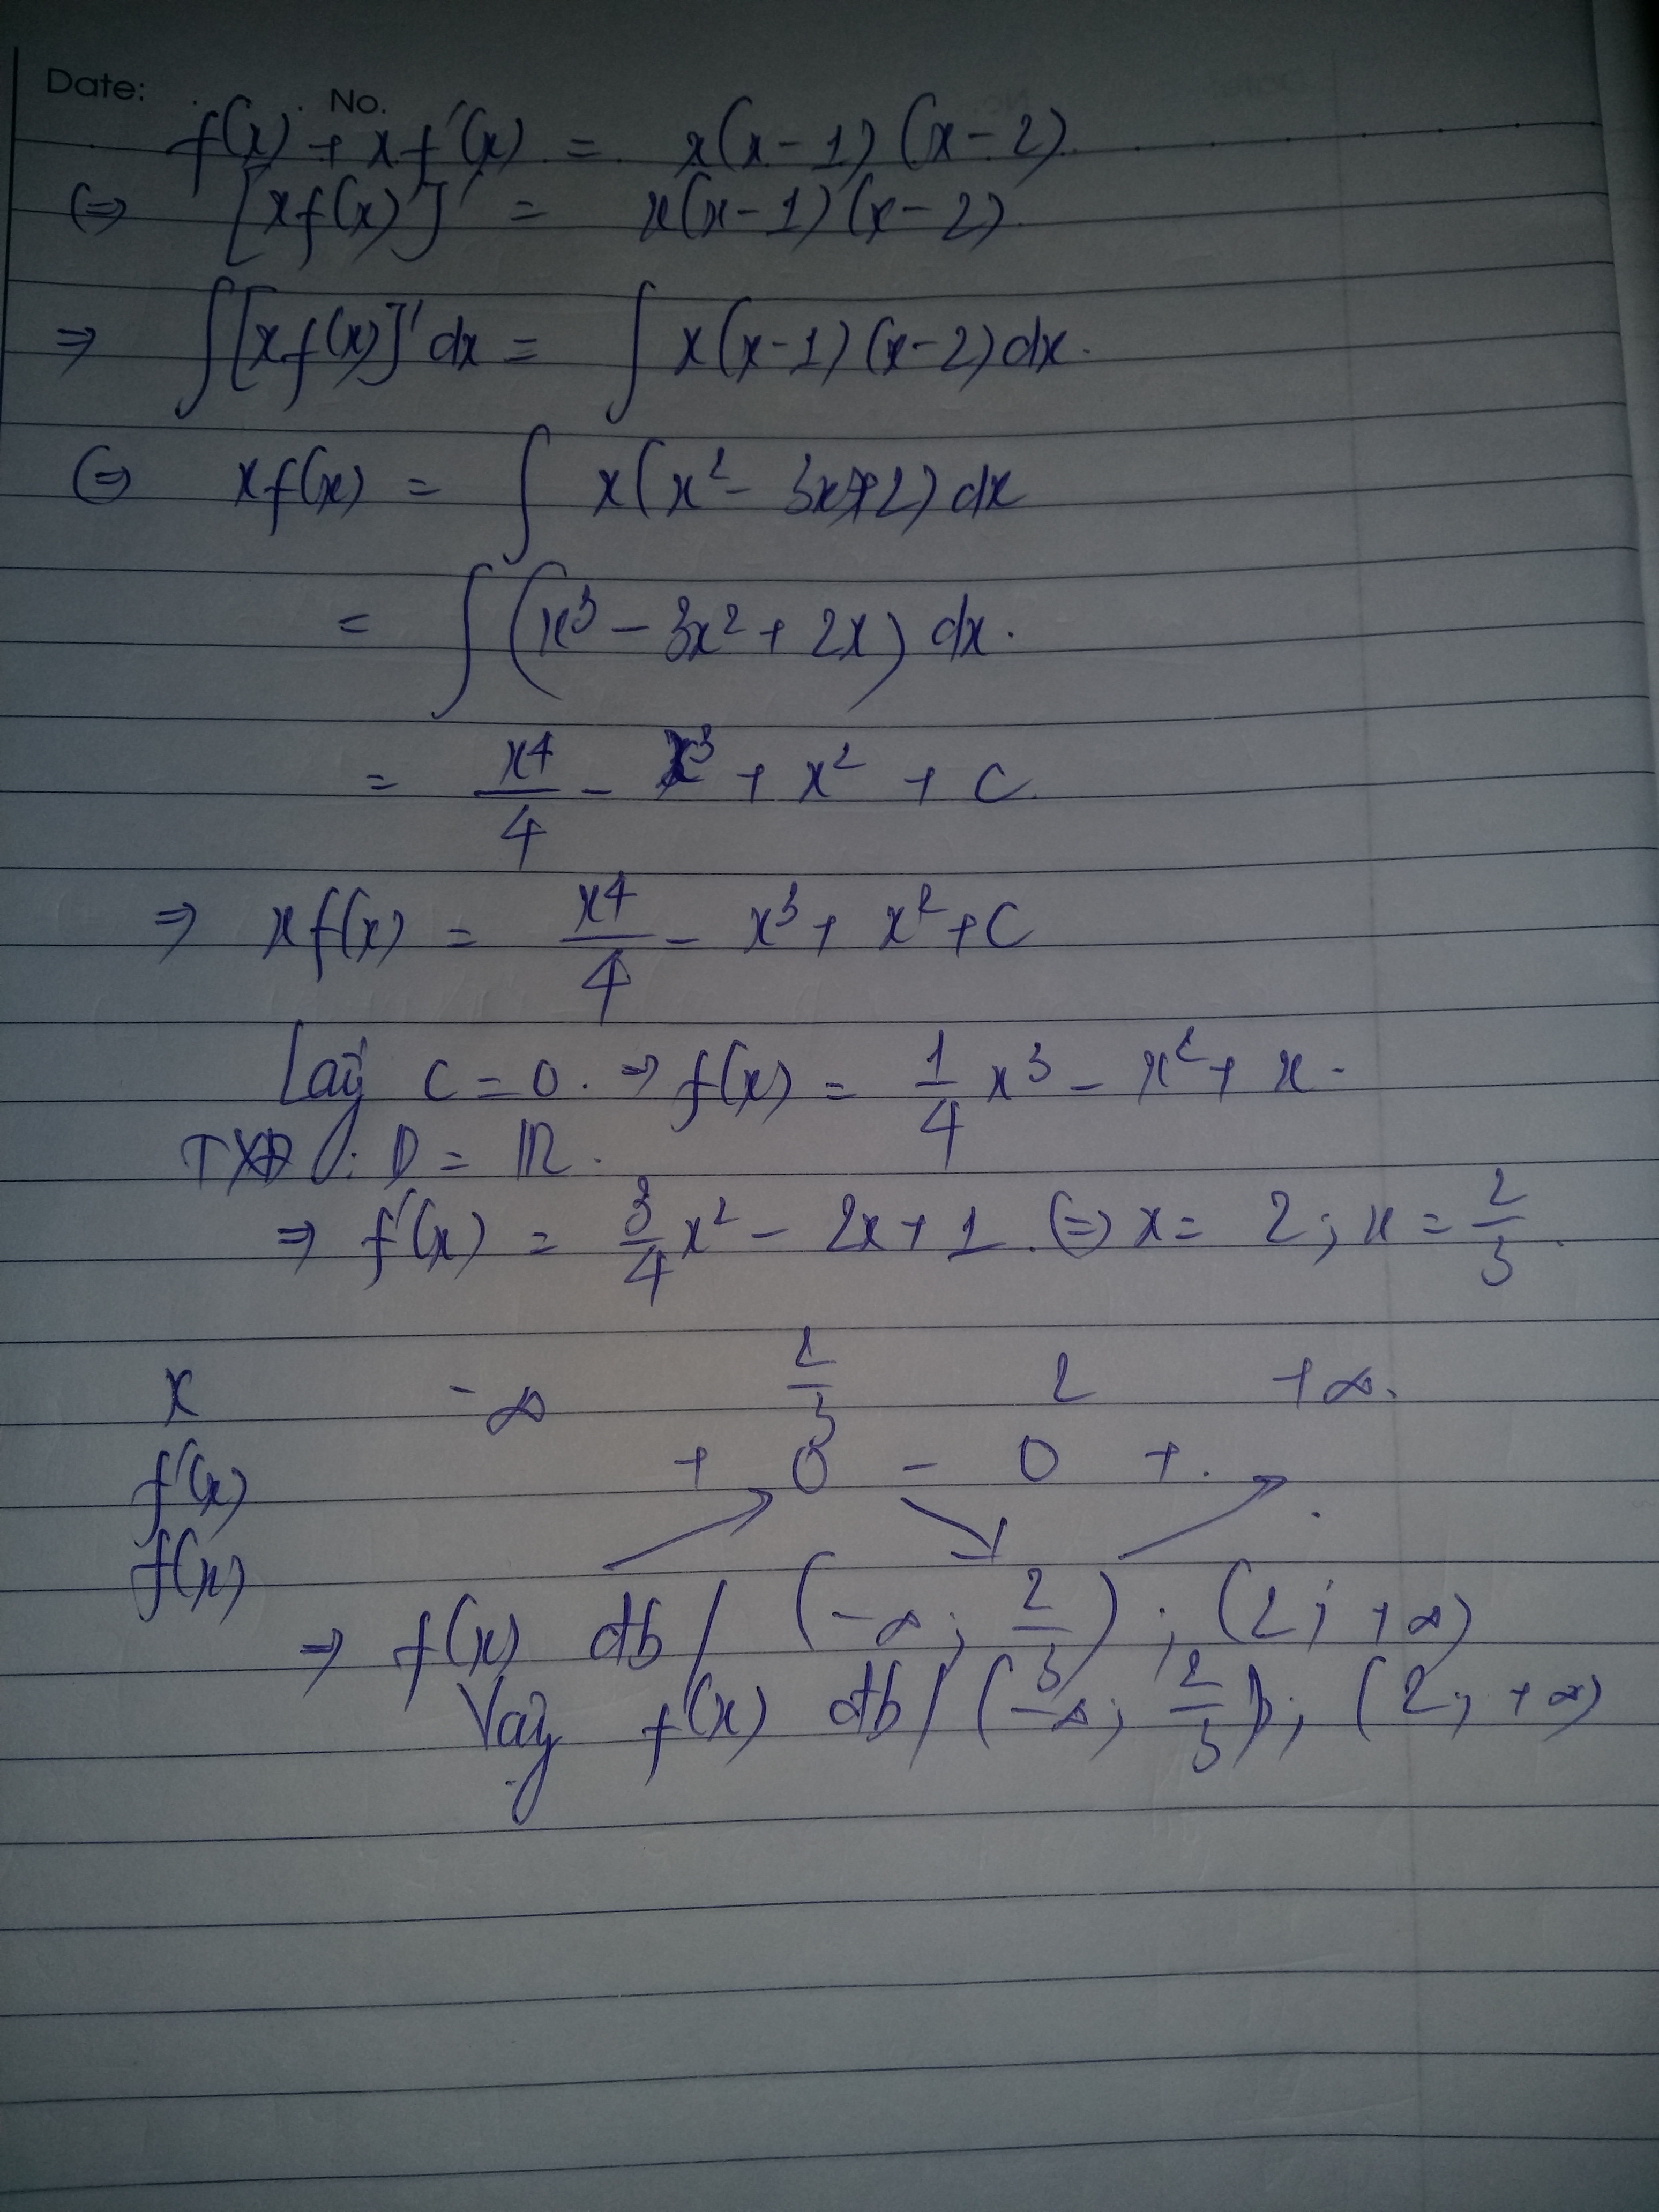 Date: . . No.
f(x) + xf'(x) = x(x-1)(x-2)
(=) [xf(x)]' = x(x-1)(x-2).
=> ∫[xf(x)]'dx = ∫ x(x-1)(x-2)dx.
(=) xf(x) = ∫ x(x² - 3x+2)dx
= ∫ (x³ - 3x² + 2x) dx.
= x⁴/4 - x³ + x² + C.
=> xf(x) = x⁴/4 - x³ + x² + C
Lấy C = 0. => f(x) = 1/4 x³ - x² + x.
TXĐ: D = ℝ.
=> f'(x) = 3/4 x² - 2x + 1. (=) x = 2; x = 2/3.
x -∞ 2/3 2 +∞.
f'(x) + 0 - 0 +.
f(x)
=> f(x) đb/ (-∞; 2/3); (2; +∞)
Vậy f(x) đb/ (-∞; 2/3); (2; +∞)